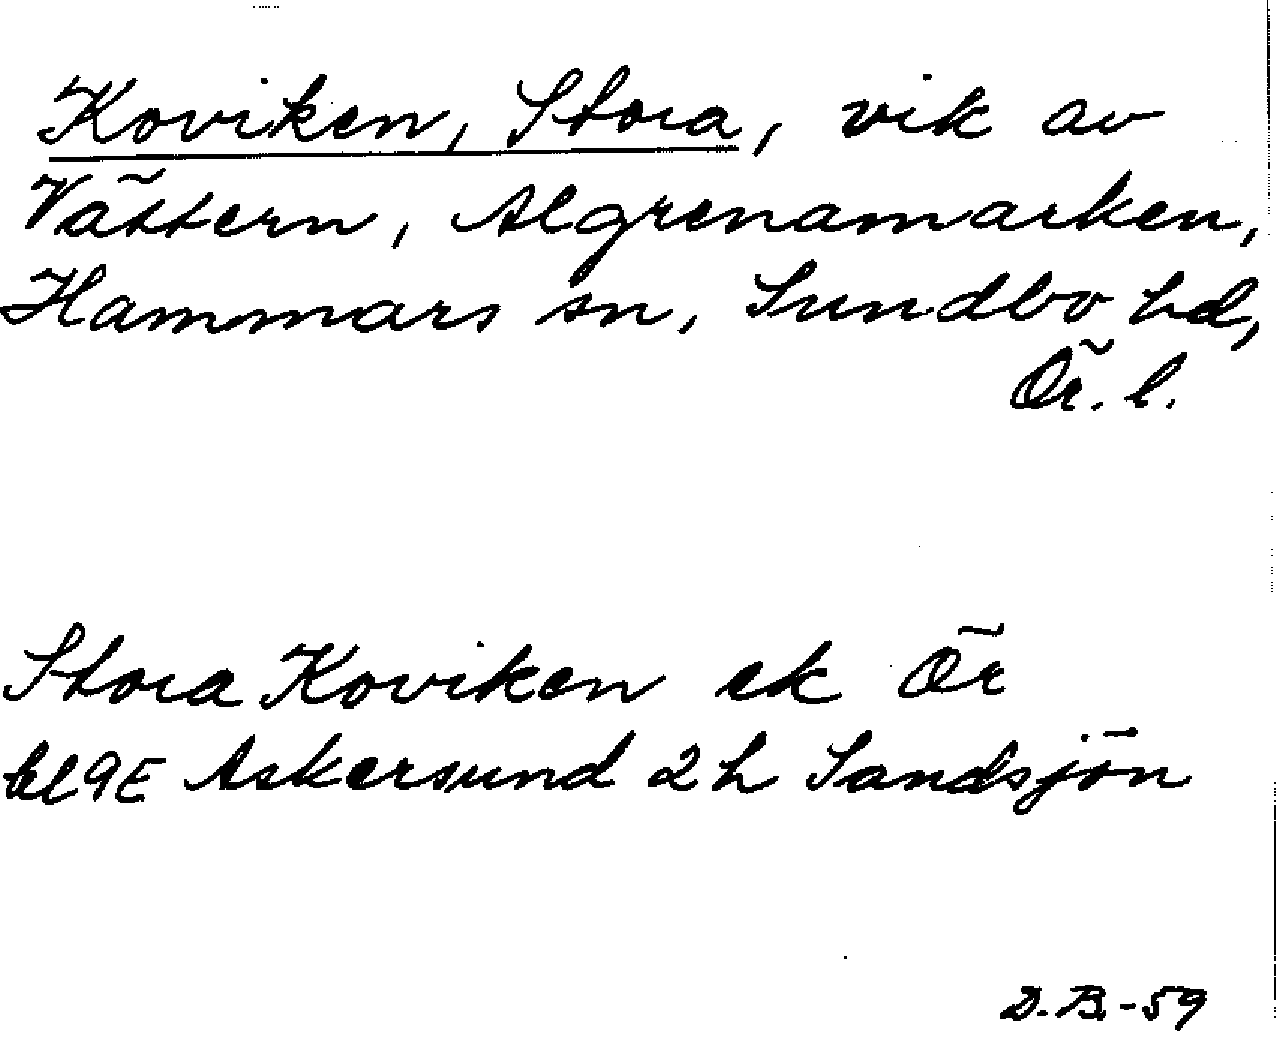 Koviken, Stora, vik av
Vättern, Algrenamarken,
Hammars sn, Sundbo hd,
Ör. l.
Stora Koviken ek Ör
bl 9E Askersund 2h Sandsjön
D.B.-59